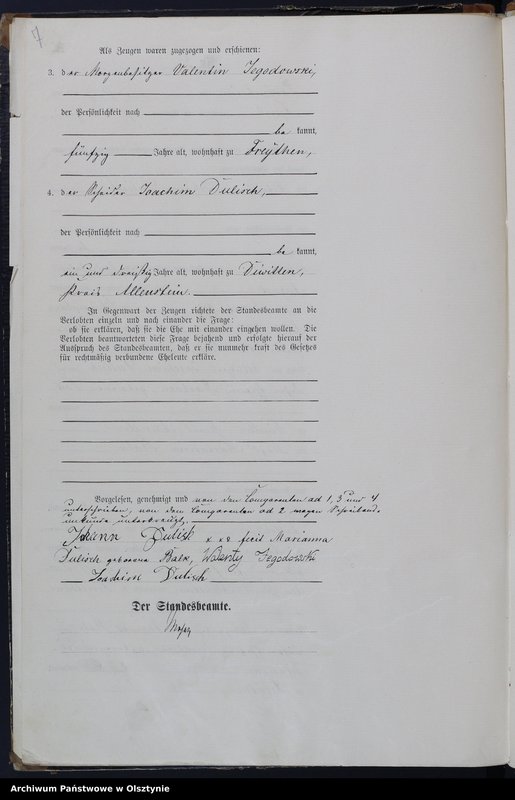 7
Als Zeugen waren zugezogen und erschienen:
3. der Morgenbesitzer Valentin Jegodowski,
der Persönlichkeit nach
be kannt,
fünfzig Jahre alt, wohnhaft zu Freythen,
4. der Joachim Dulisch,
der Persönlichkeit nach
be kannt,
ein und dreißig Jahre alt, wohnhaft zu Diwitten,
Kreis Allenstein.
In Gegenwart der Zeugen richtete der Standesbeamte an die
Verlobten einzeln und nach einander die Frage:
ob sie erklären, daß sie die Ehe mit einander eingehen wollen. Die
Verlobten beantworteten diese Frage bejahend und erfolgte hierauf der
Ausspruch des Standesbeamten, daß er sie nunmehr kraft des Gesetzes
für rechtmäßig verbundene Eheleute erkläre.
Vorgelesen, genehmigt und von den Comparenten ad 1, 3 und 4
unterschrieben, von dem Comparenten ad 2 wegen Schreibens-
unkunde unterkreuzt.
Johann Dulisch x x x fecit Marianna
Dulisch geborene Balk, Walenty Jegodowski
Joachim Dulisch
Der Standesbeamte.
Archiwum Państwowe w Olsztynie